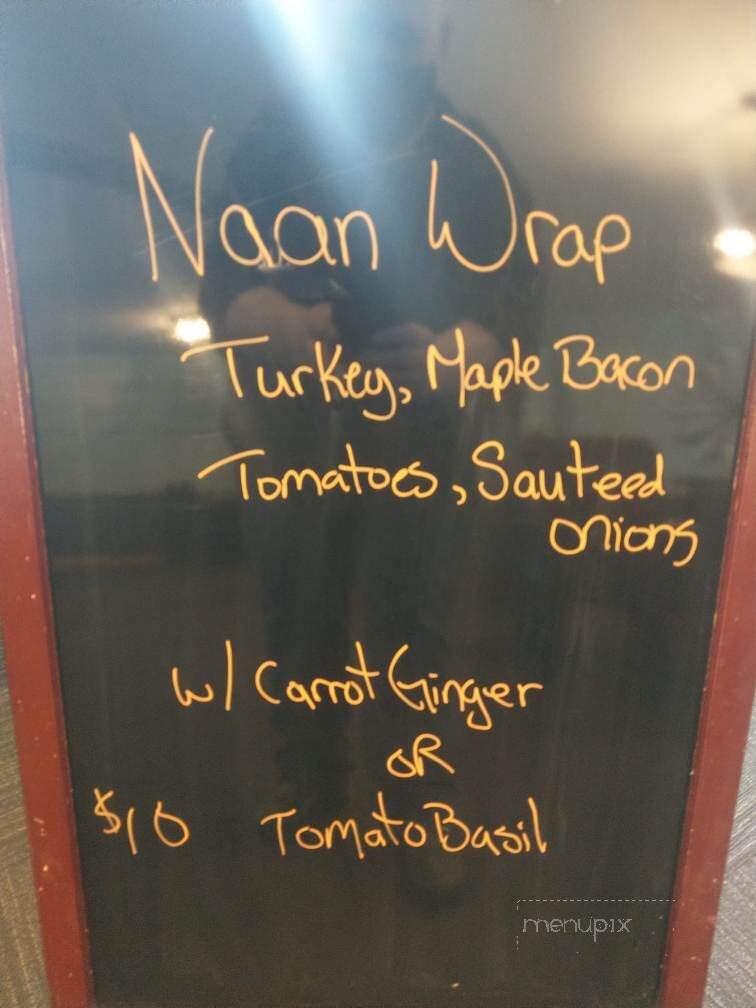 Naan Wrap
Turkey, Maple Bacon
Tomatoes, Sauteed
onions
w/ Carrot Ginger
OR
$10 Tomato Basil
menupix